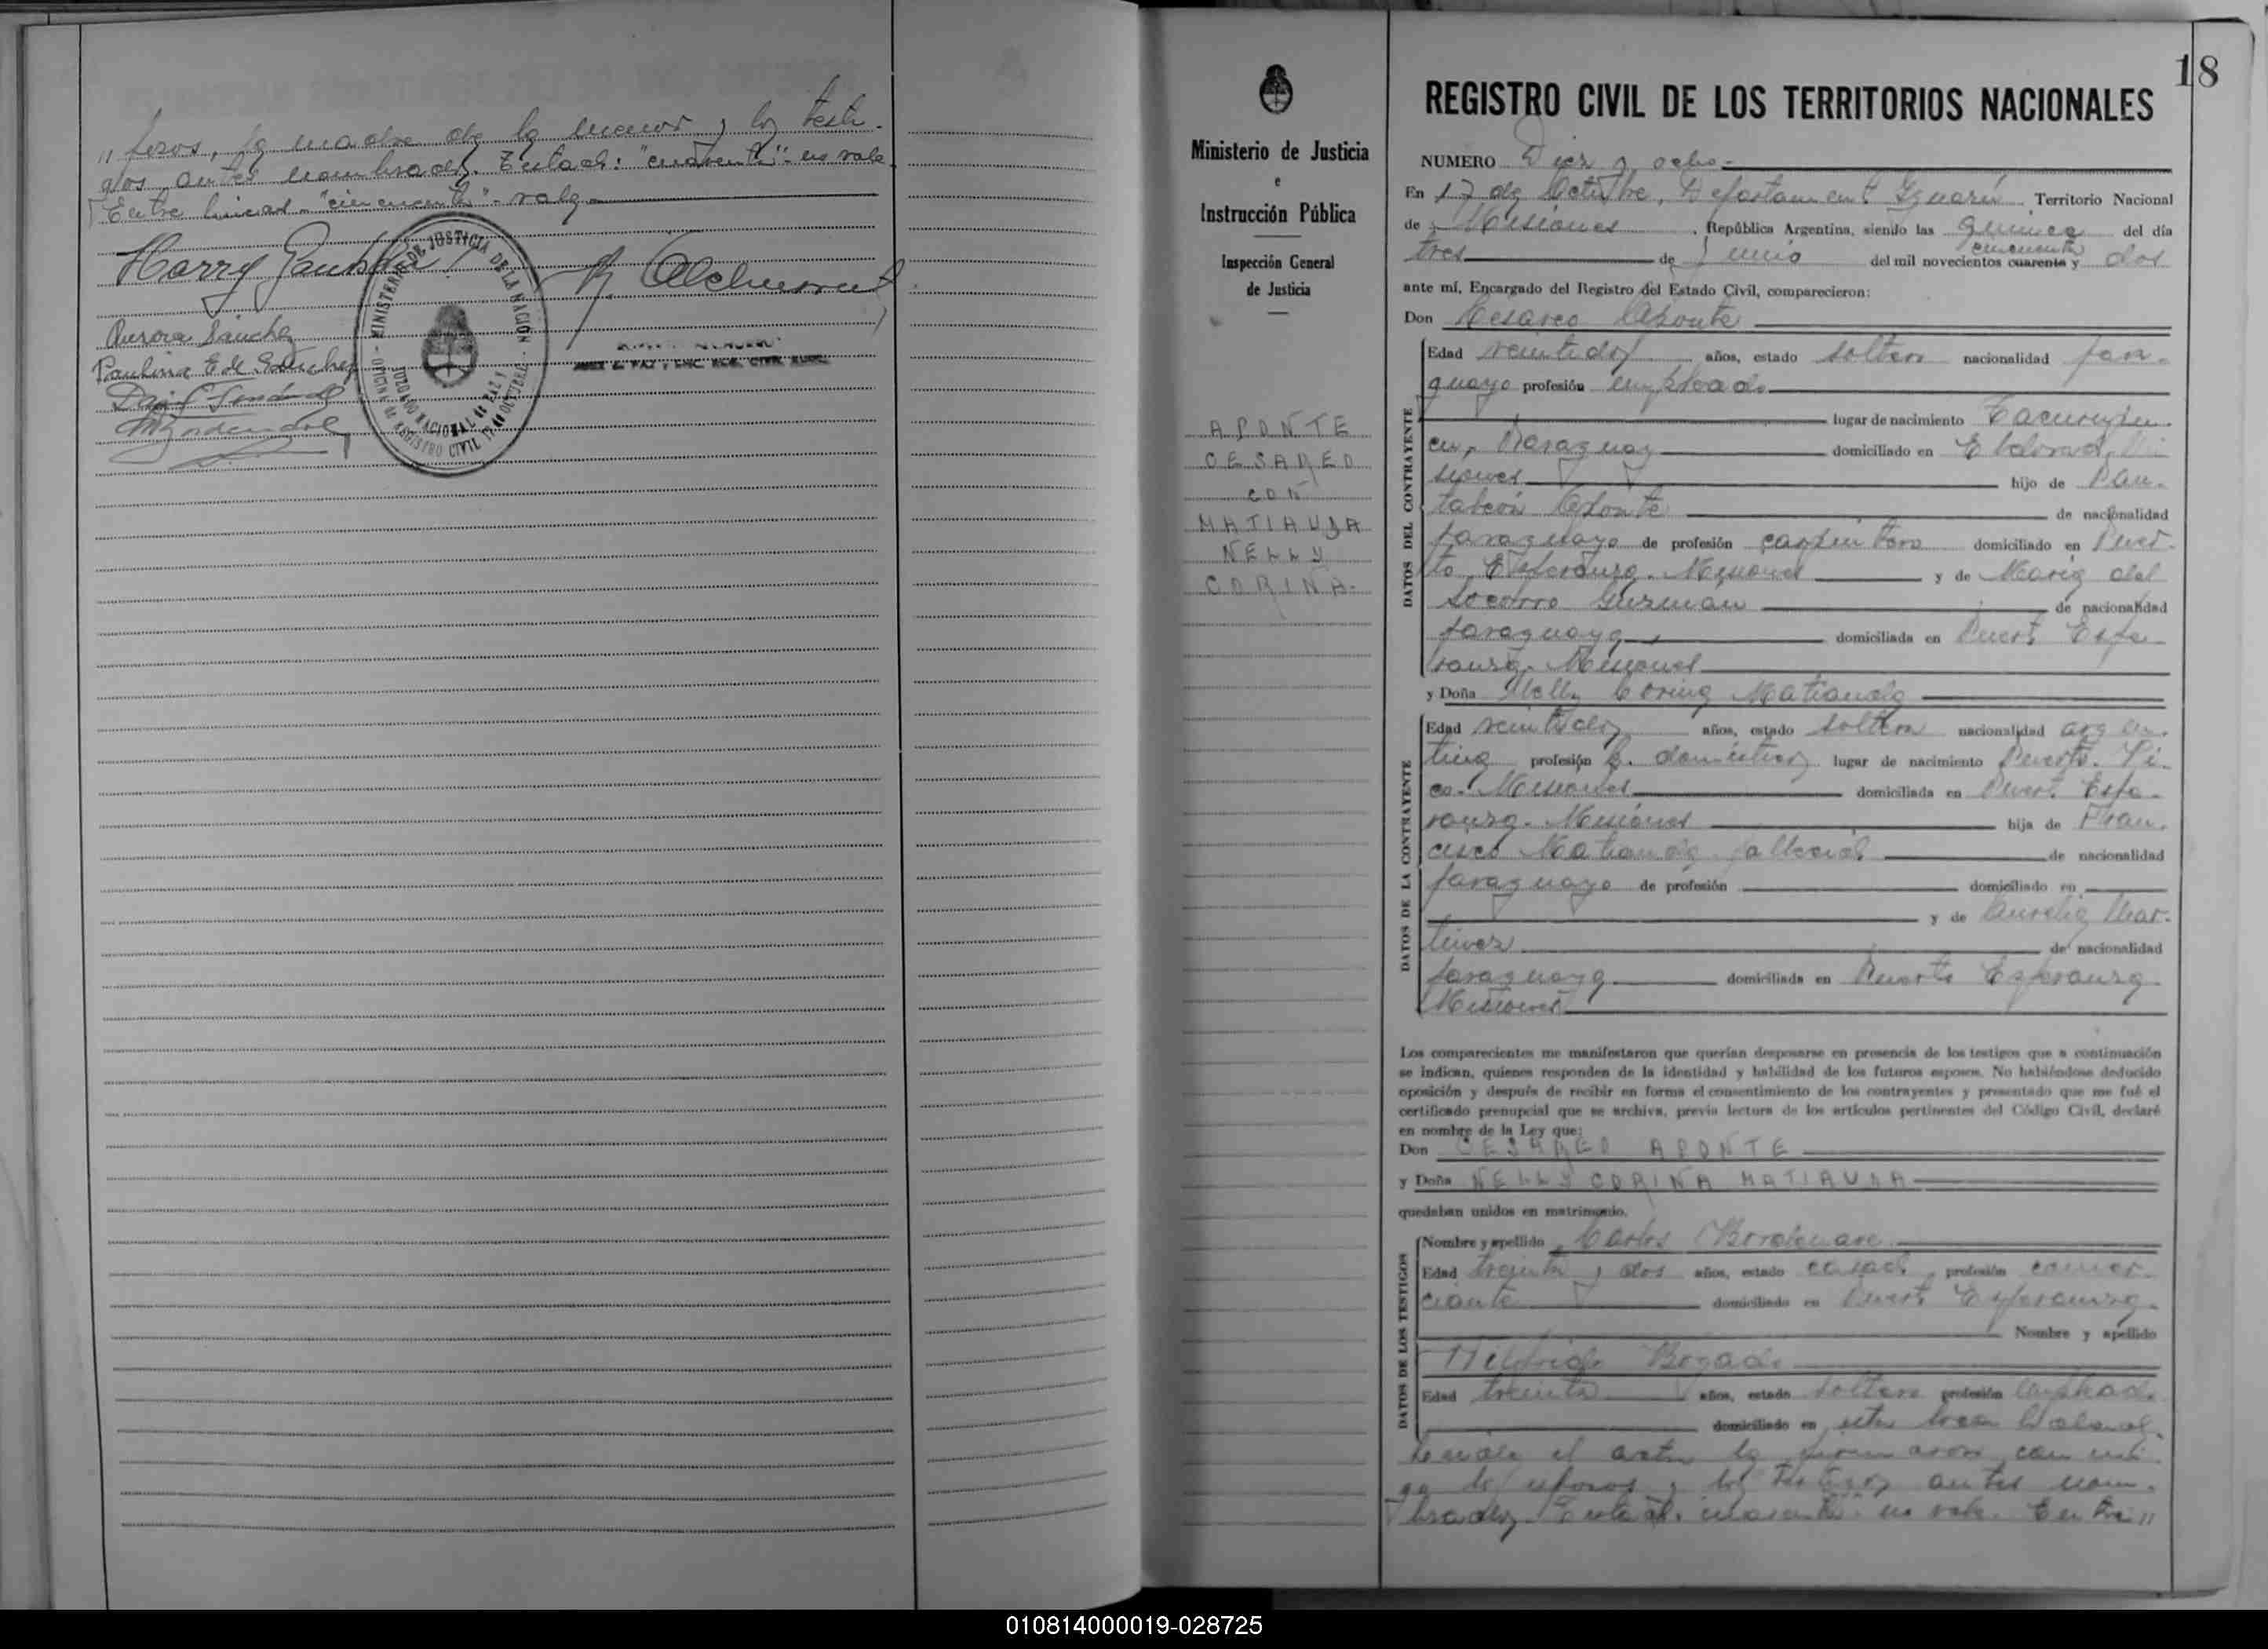 posos, la madre de la menor y los testi-
gos antes nombrados. Entdo: "cuarenta" - no vale
Entre lineas - "cincuenta" - vale
Harry
Aurora Sánchez
Paulina E. de Sánchez
MINISTERIO DE JUSTICIA DE LA NACIÓN
JUZGADO NACIONAL de PAZ y
OFICINA de REGISTRO CIVIL 17 de OCTUBRE
18
Ministerio de Justicia
e
Instrucción Pública
Inspección General
de Justicia
APONTE
CESAREO
CON
MATIAUDA
NELLY
CORINA.
REGISTRO CIVIL DE LOS TERRITORIOS NACIONALES
NUMERO Diez y ocho.
En 17 de Octubre, Departamento Iguazú Territorio Nacional
de Misiones , República Argentina, siendo las quince del día
cincuenta
tres de Junio del mil novecientos cuarenta y dos
ante mí, Encargado del Registro del Estado Civil, comparecieron:
Don Cesáreo Aponte
DATOS DEL CONTRAYENTE
Edad veintidos años, estado soltero nacionalidad para-
guayo profesión empleado
lugar de nacimiento
Paraguay domiciliado en Eldorado, Mi
siones hijo de Pan-
taleón Aponte de nacionalidad
paraguayo de profesión carpintero domiciliado en Puer-
to Esperanza. Misiones y de María del
Socorro Guzmán de nacionalidad
paraguaya, domiciliada en Puerto Espe
ranza. Misiones
y Doña Nelly Corina Matiauda
DATOS DE LA CONTRAYENTE
Edad veintidos años, estado soltera nacionalidad argen-
tina profesión q. domésticos lugar de nacimiento Puerto Pi-
co. Misiones domiciliada en Puerto Espe-
ranza. Misiones hija de Fran-
cisco Matiauda fallecido de nacionalidad
paraguayo de profesión domiciliado en
y de Aurelia Mar-
tinez de nacionalidad
paraguaya domiciliada en Puerto Esperanza
Misiones
Los comparecientes me manifestaron que querían desposarse en presencia de los testigos que a continuación
se indican, quienes responden de la identidad y habilidad de los futuros esposos. No habiéndose deducido
oposición y después de recibir en forma el consentimiento de los contrayentes y presentado que me fué el
certificado prenupcial que se archiva, previa lectura de los artículos pertinentes del Código Civil, declaré
en nombre de la Ley que:
Don CESAREO APONTE
y Doña NELLY CORINA MATIAUDA
quedaban unidos en matrimonio.
DATOS DE LOS TESTIGOS
Nombre y apellido Carlos Bordenave
Edad treinta y dos años, estado casado, profesión comer-
ciante domiciliado en Puerto Esperanza.
Nombre y apellido
Bogado
Edad treinta años, estado soltero profesión empleado
domiciliado en esta localidad.
Leída el acta la firmaron con mi
go los esposos y los testigos antes nom-
brados. Entdo. cuarenta no vale. Entre
010814000019-028725